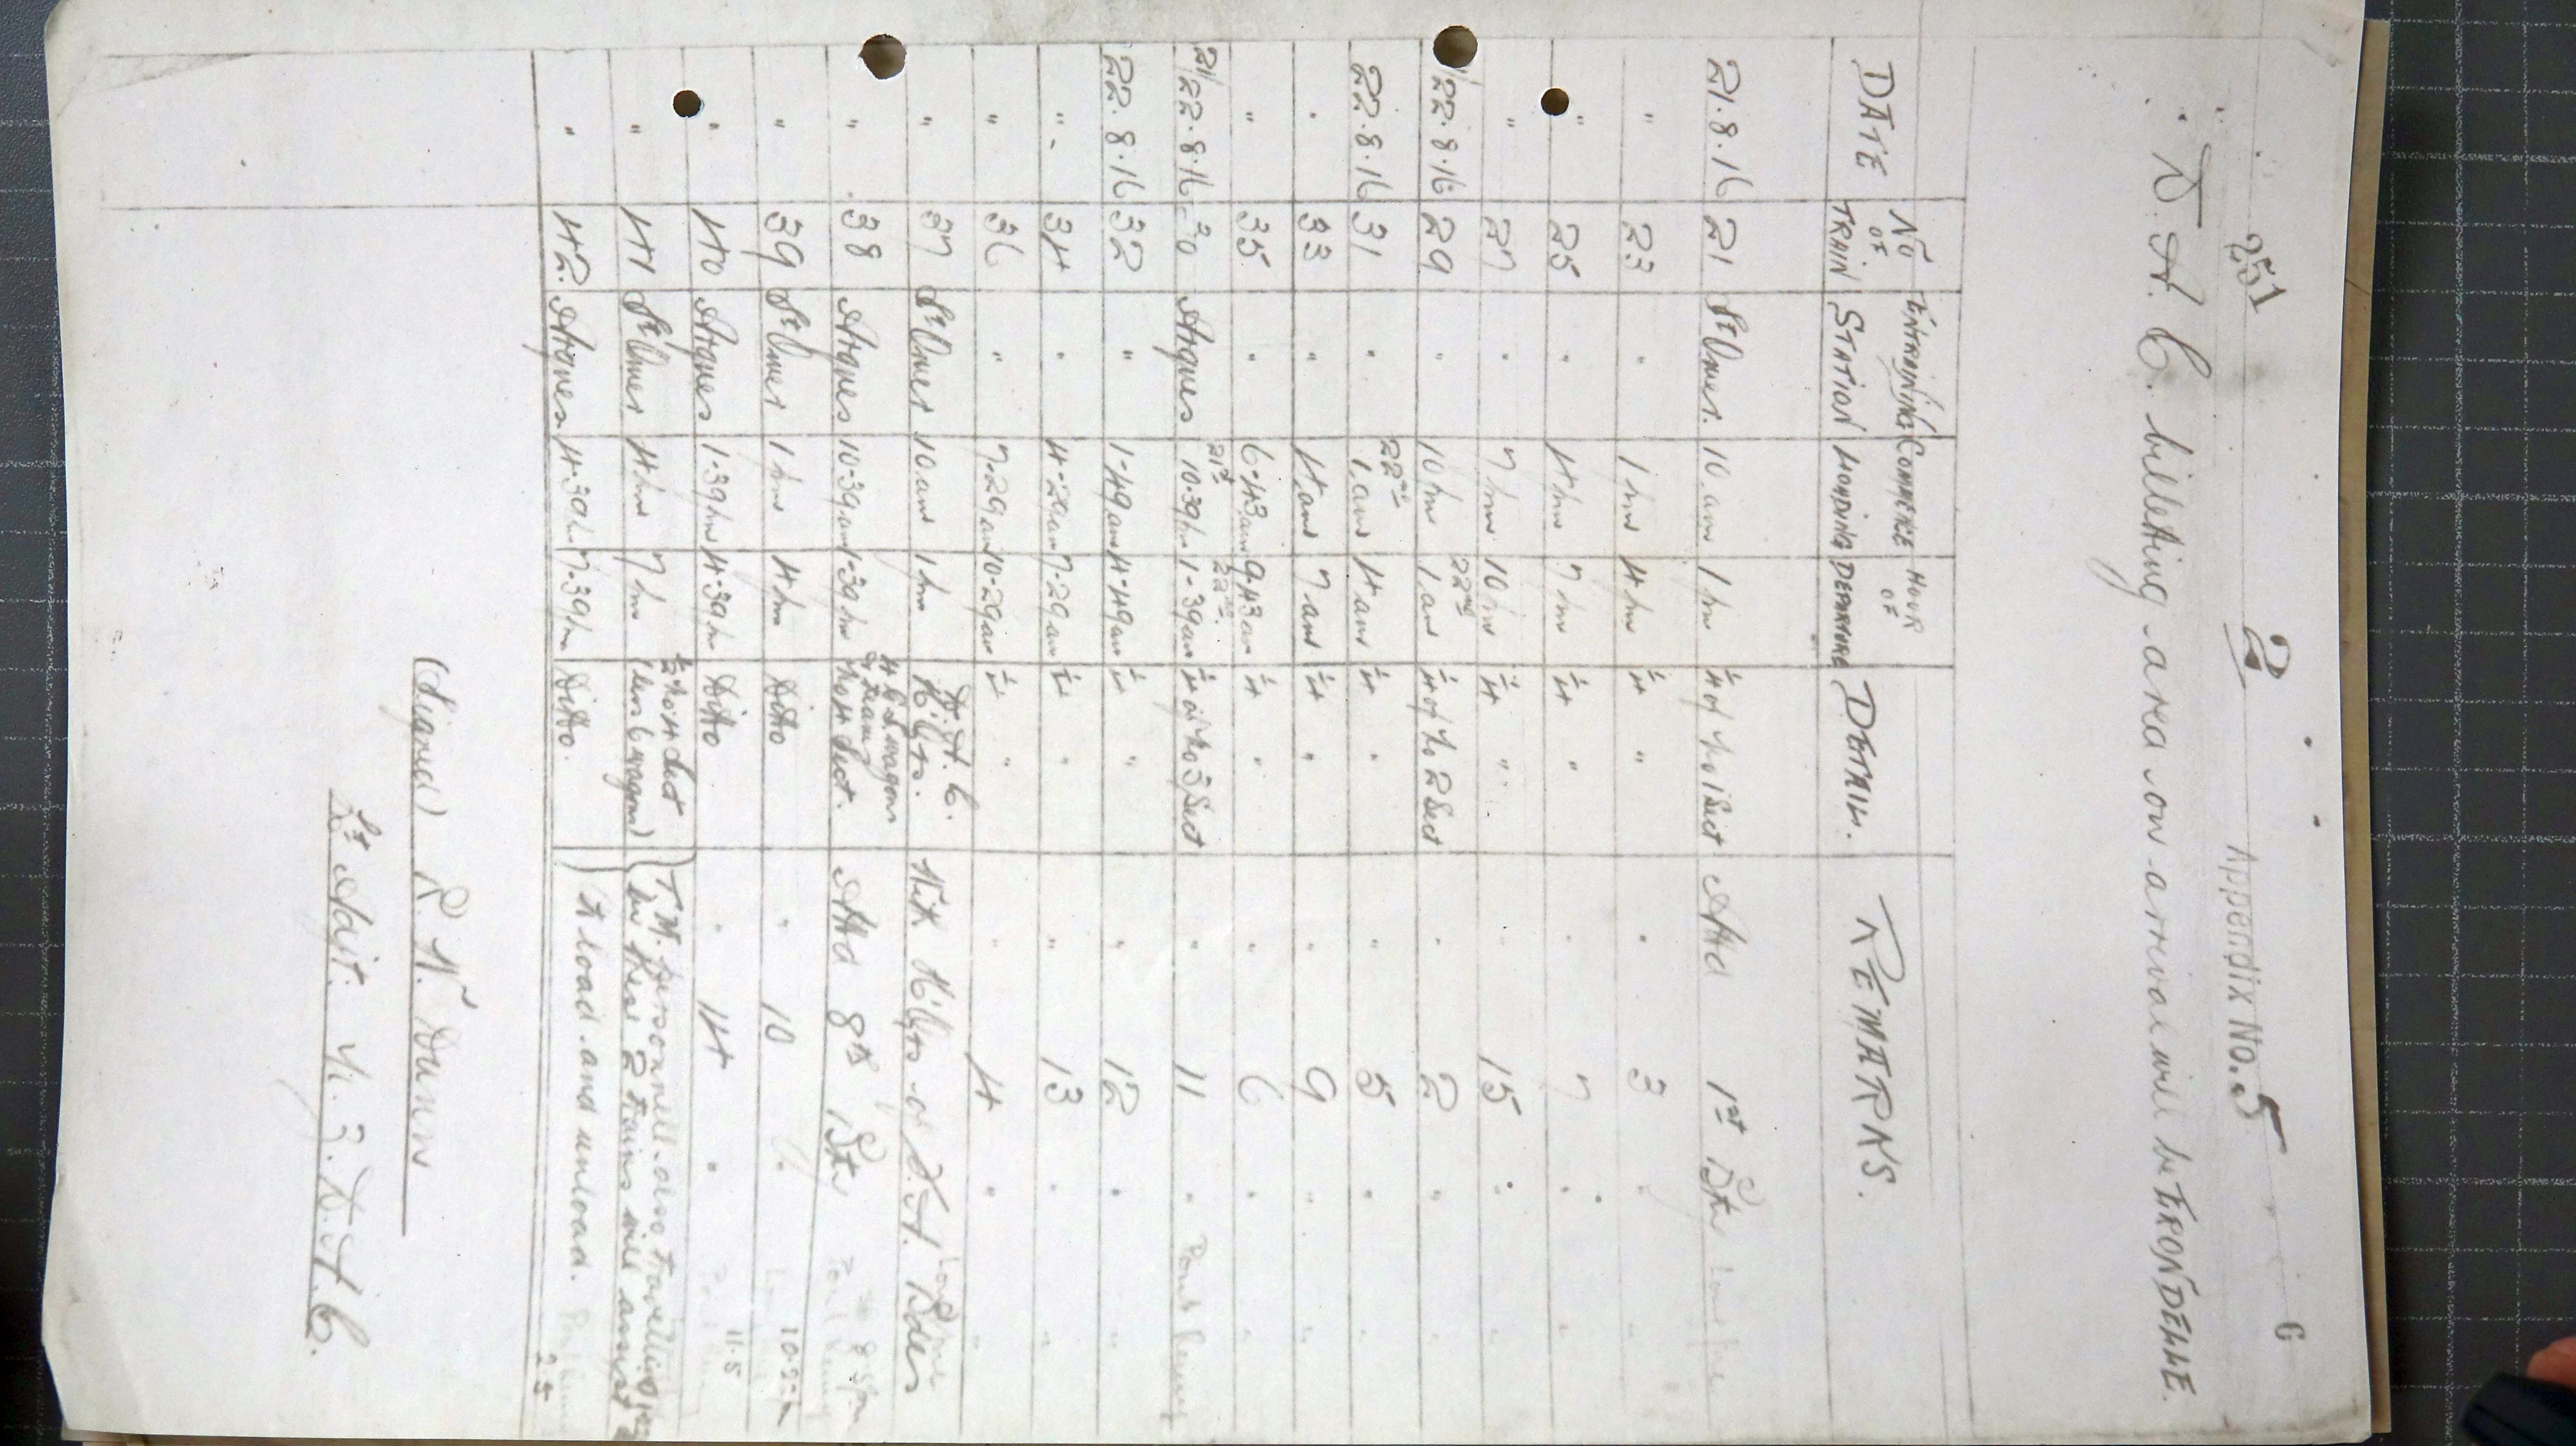 251
2
Appendix No. 5
G
D.A.C. billeting area on arrival will be FRONDELLE.
DATE | No OF TRAIN | ENTRAINING STATION | COMMENCE LOADING | HOUR OF DEPARTURE | DETAIL. | REMARKS.
21.8.16 | 21 | St Omer. | 10 am | 1 pm | ¼ of No 1 Sect | Attd 1st Bty
" | 23 | " | 1 pm | 4 pm | ¼ " | " 3 "
" | 25 | " | 4 pm | 7 pm | ¼ " | " 7 "
" | 27 | " | 7 pm | 10 pm | ¼ " | " 15 "
/22.8.16 | 29 | " | 10 pm | 22nd 1 am | ¼ of No 2 Sect | " 2 "
22.8.16 | 31 | " | 22nd 1 am | 4 am | ¼ " | " 5 "
" | 33 | " | 4 am | 7 am | ¼ " | " 9 "
" | 35 | " | 6-43 am | 9-43 am | ¼ " | " 6 "
21/22.8.16 | 30 | Arques | 21st 10-39 pm | 22nd 1-39 am | ¼ of No 3 Sect | " 11 "
22.8.16 | 32 | " | 1-49 am | 4-49 am | ¼ " | " 12 "
" | 34 | " | 4-29 am | 7-29 am | ¼ " | " 13 "
" | 36 | " | 7-29 am | 10-29 am | ¼ " | " 4 "
" | 37 | St Omer | 10 am | 1 pm | D.A.C. H.Qrs. | With H.Qrs. of D.A.
" | 38 | Arques | 10-39 am | 1-39 pm | 4 G.S. wagons & teams No 4 Sect. | Attd 8th Bty
" | 39 | St Omer | 1 pm | 4 pm | Ditto | " 10
" | 40 | Arques | 1-39 pm | 4-39 pm | Ditto | " 14 "
" | 41 | St Omer | 4 pm | 7 pm | ½ No 4 Sect (less 6 wagons) | T.M. personnel also travelling by these 2 trains will assist
" | 42. | Arques | 4-39 pm | 7-39 pm | Ditto. | to load and unload.
(Signed) R. N. Dunn
Lt Adjt. 3. D.A.C.